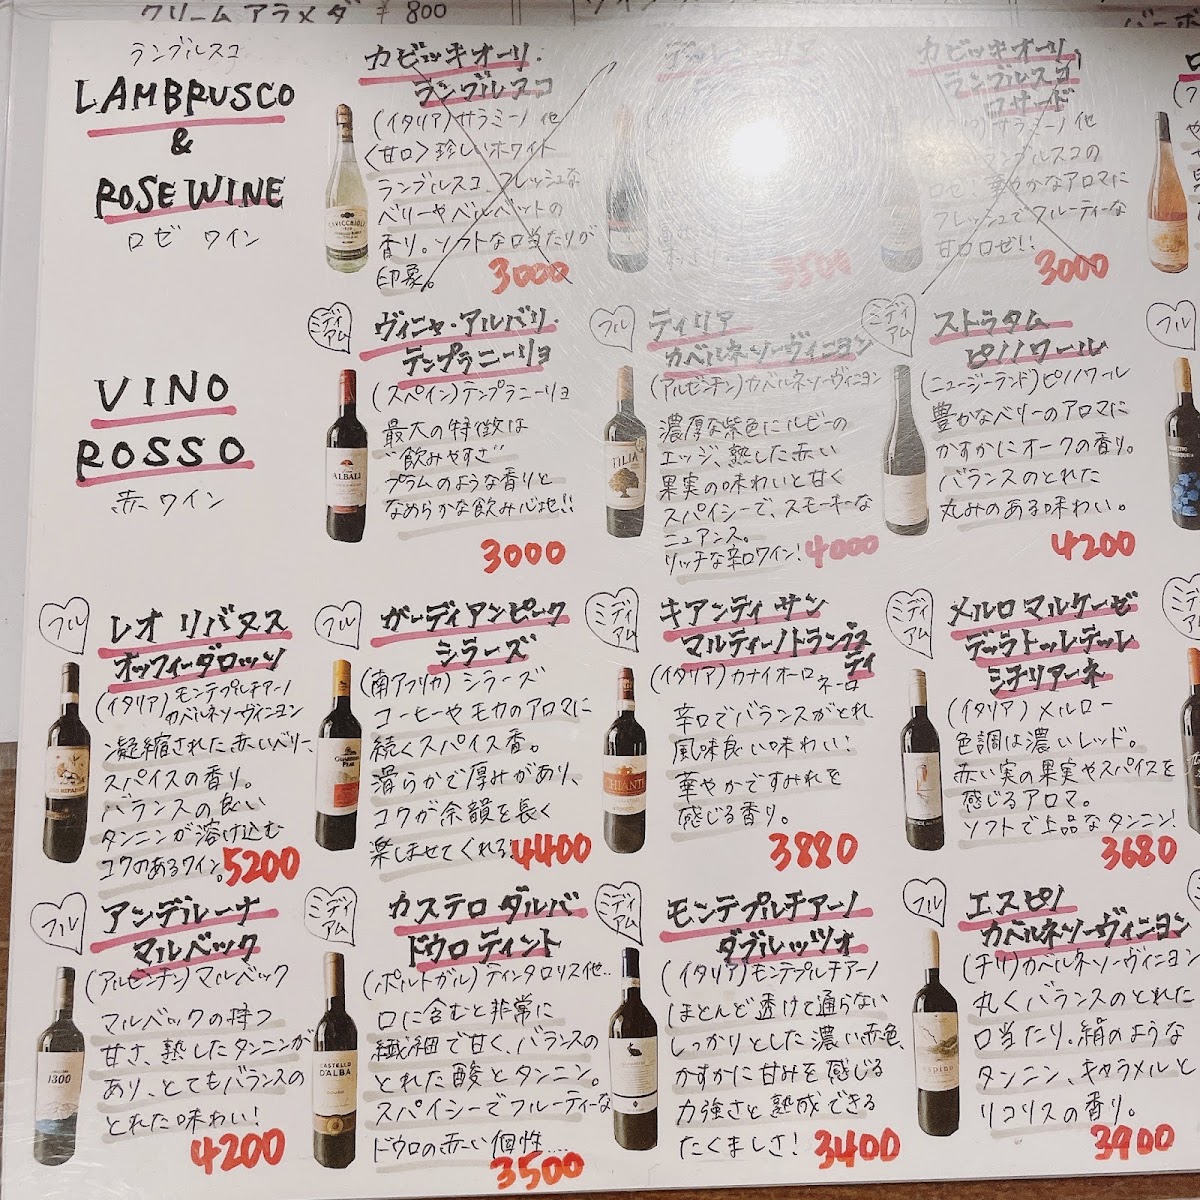 クリームアラメダ ¥800
ランブルスコ
LAMBRUSCO
&
ROSE WINE
ロゼ ワイン
カビッキオーリ・
ランブルスコ
(イタリア)サラミーノ他
〈甘口〉珍しいホワイト
ランブルスコ、フレッシュな
ベリーやベルベットの
香り。ソフトな口当たりが
印象。
3000
3500
カビッキオーリ
ランブルスコ
ロサード
サラミーノ他
ランブルスコの
華やかなアロマに
フレッシュでフルーティーな
甘口ロゼ!!
3000
VINO
ROSSO
赤ワイン
ミディアム
ヴィニャ・アルバリ・
テンプラニーリョ
(スペイン)テンプラニーリョ
最大の特徴は
"飲みやすさ"
プラムのような香りと
なめらかな飲み心地!!
3000
フル
ティリア
カベルネソーヴィニヨン
(アルゼンチン)カベルネソーヴィニヨン
濃厚な紫色にルビーの
エッジ、熟した赤い
果実の味わいと甘く
スパイシーで、スモーキーな
ニュアンス。
リッチな辛口ワイン!
4000
ミディアム
ストラタム
ピノノワール
(ニュージーランド)ピノノワール
豊かなベリーのアロマに
かすかにオークの香り。
バランスのとれた
丸みのある味わい。
4200
フル
フル
レオ リパヌス
オッフィーダロッソ
(イタリア)モンテプルチアーノ
カベルネソーヴィニヨン
凝縮された赤いベリー、
スパイスの香り。
バランスの良い
タンニンが溶け込む
コクのあるワイン。
5200
フル
ガーディアンピーク
シラーズ
(南アフリカ)シラーズ
コーヒーやモカのアロマに
続くスパイス香。
滑らかで厚みがあり、
コクが余韻を長く
楽しませてくれる!
4400
ミディアム
キアンティサン
マルティーノトランプス
ティ
(イタリア)カナイオーロネーロ
辛口でバランスがとれ
風味良い味わい!
華やかですみれを
感じる香り。
3880
ミディアム
メルロマルケーゼ
デッラトッレデッレ
ミチリアーネ
(イタリア)メルロー
色調は濃いレッド。
赤い実の果実やスパイスを
感じるアロマ。
ソフトで上品なタンニン!
3680
フル
アンデルーナ
マルベック
(アルゼンチン)マルベック
マルベックの持つ
甘さ、熟したタンニンが
あり、とてもバランスの
とれた味わい!
4200
ミディアム
カステロダルバ
ドウロティント
(ポルトガル)ティンタロリス他..
口に含むと非常に
繊細で甘く、バランスの
とれた酸とタンニン。
スパイシーでフルーティーな
ドウロの赤い個性....
3500
ミディアム
モンテプルチアーノ
ダブルッツオ
(イタリア)モンテプルチアーノ
ほとんど透けて通らない
しっかりとした濃い赤色、
かすかに甘みを感じる
力強さと熟成できる
たくましさ!
3400
フル
エスピノ
カベルネソーヴィニヨン
(チリ)カベルネソーヴィニヨン
丸くバランスのとれた
口当たり。絹のような
タンニン、キャラメルと
リコリスの香り。
3900